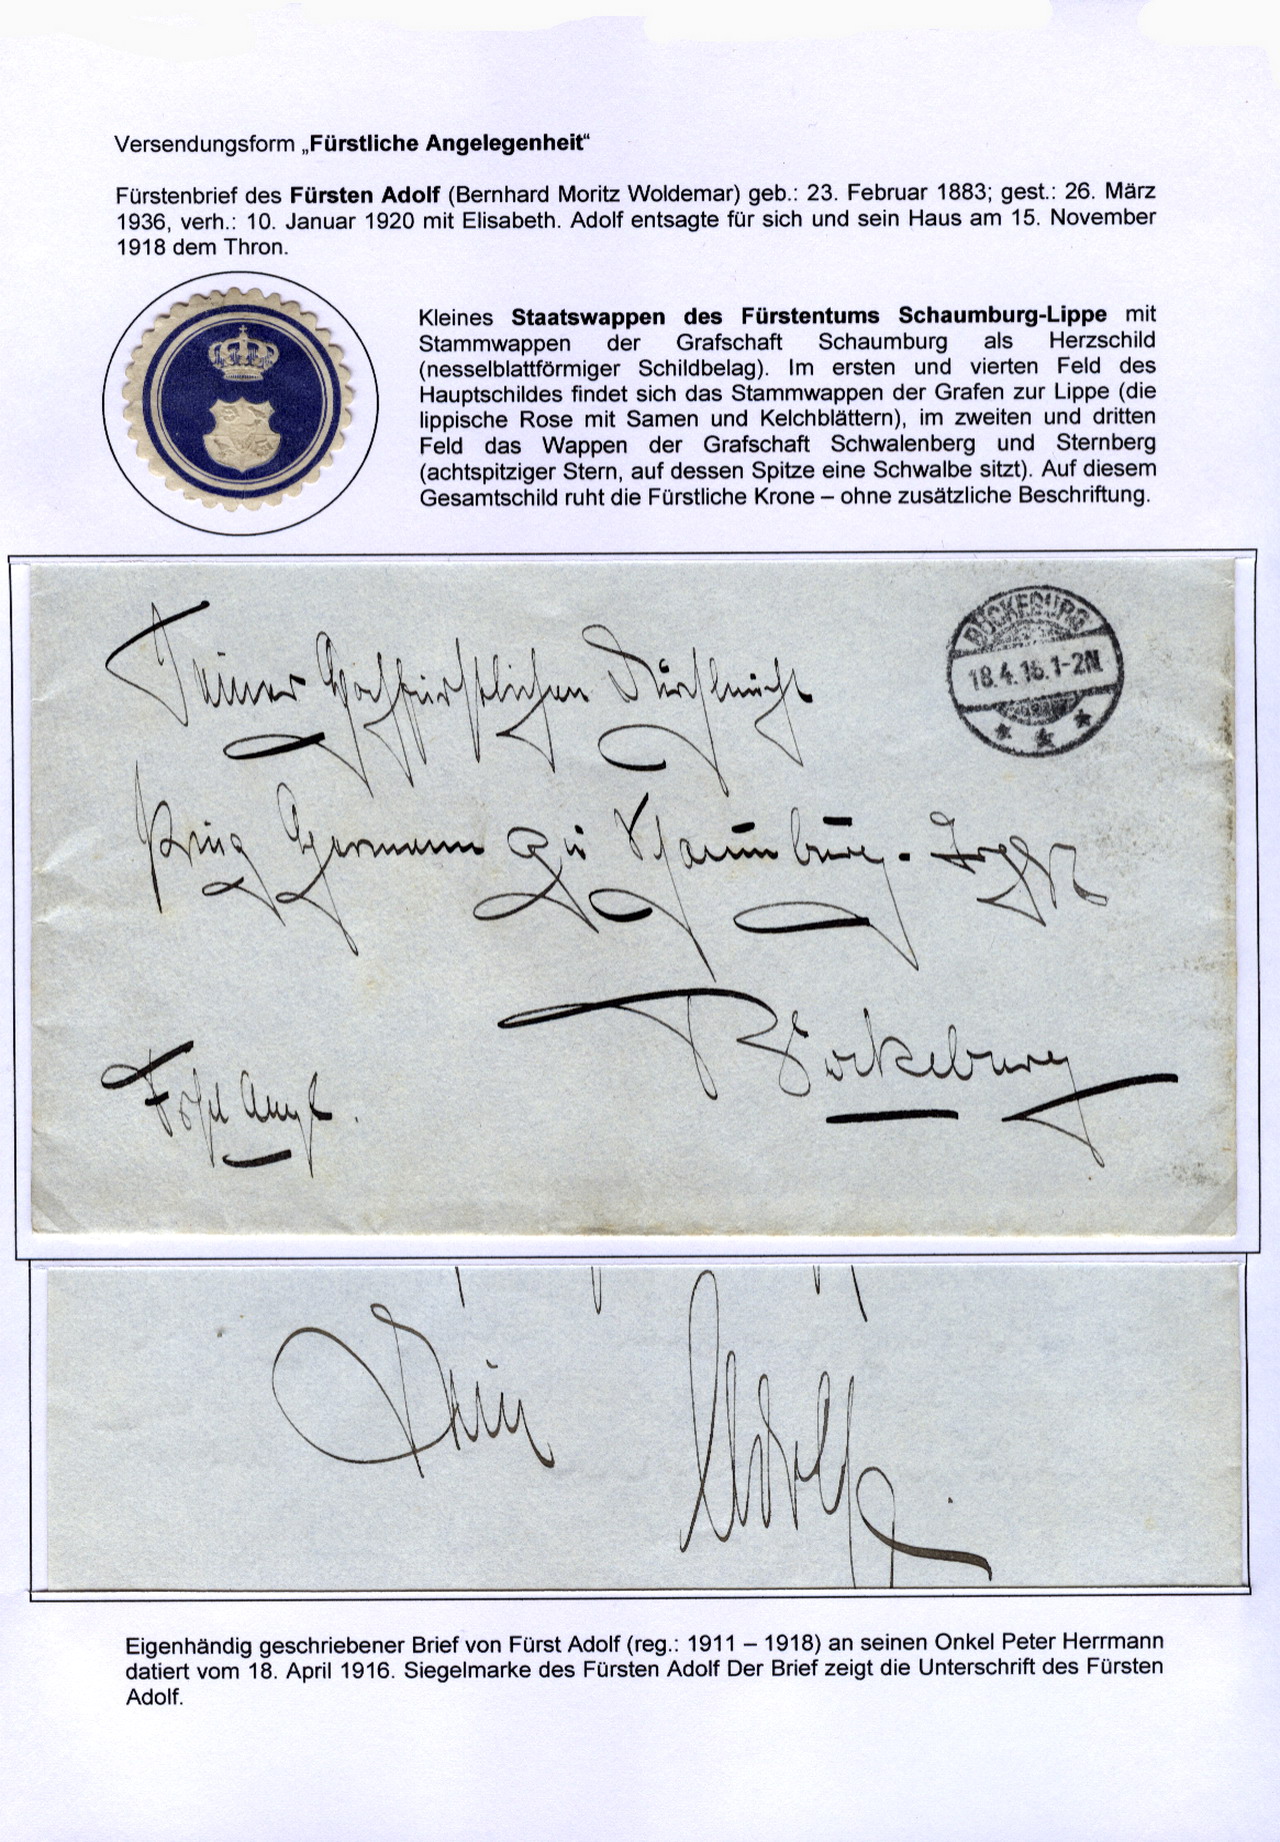 Versendungsform „Fürstliche Angelegenheit“
Fürstenbrief des Fürsten Adolf (Bernhard Moritz Woldemar) geb.: 23. Februar 1883; gest.: 26. März
1936, verh.: 10. Januar 1920 mit Elisabeth. Adolf entsagte für sich und sein Haus am 15. November
1918 dem Thron.
Kleines Staatswappen des Fürstentums Schaumburg-Lippe mit
Stammwappen der Grafschaft Schaumburg als Herzschild
(nesselblattförmiger Schildbelag). Im ersten und vierten Feld des
Hauptschildes findet sich das Stammwappen der Grafen zur Lippe (die
lippische Rose mit Samen und Kelchblättern), im zweiten und dritten
Feld das Wappen der Grafschaft Schwalenberg und Sternberg
(achtspitziger Stern, auf dessen Spitze eine Schwalbe sitzt). Auf diesem
Gesamtschild ruht die Fürstliche Krone – ohne zusätzliche Beschriftung.
BÜCKEBURG
18.4.16.1-2N
Seiner Hochfürstlichen Durchlaucht
Prinz Hermann zu Schaumburg-Lippe
Bückeburg
Dein Adolf.
Eigenhändig geschriebener Brief von Fürst Adolf (reg.: 1911 – 1918) an seinen Onkel Peter Herrmann
datiert vom 18. April 1916. Siegelmarke des Fürsten Adolf Der Brief zeigt die Unterschrift des Fürsten
Adolf.